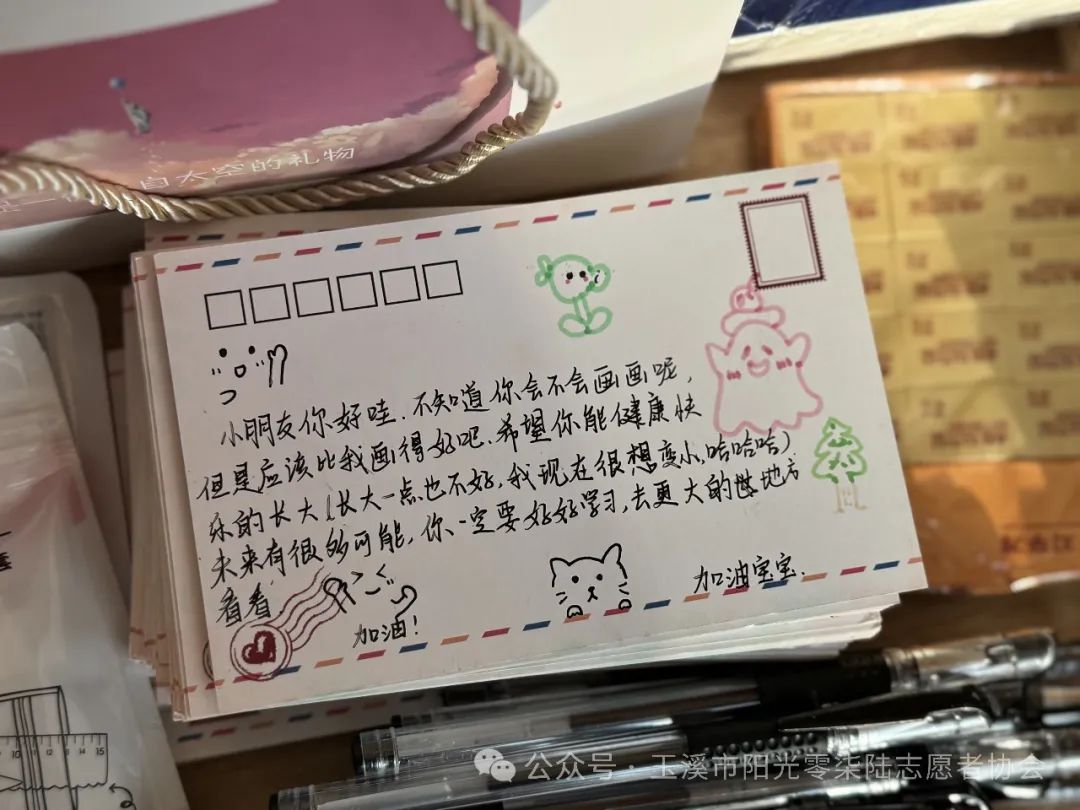 自太空的礼物
小朋友你好哇.不知道你会不会画画呢,
但是应该比我画得好吧.希望你能健康快
乐的长大(长大一点也不好,我现在很想变小,哈哈哈)
未来有很多可能,你一定要好好学习,去更大的地方
看看
加油!
加油宝宝.
10 11 12 13 14 15
公众号·玉溪市阳光零柒陆志愿者协会